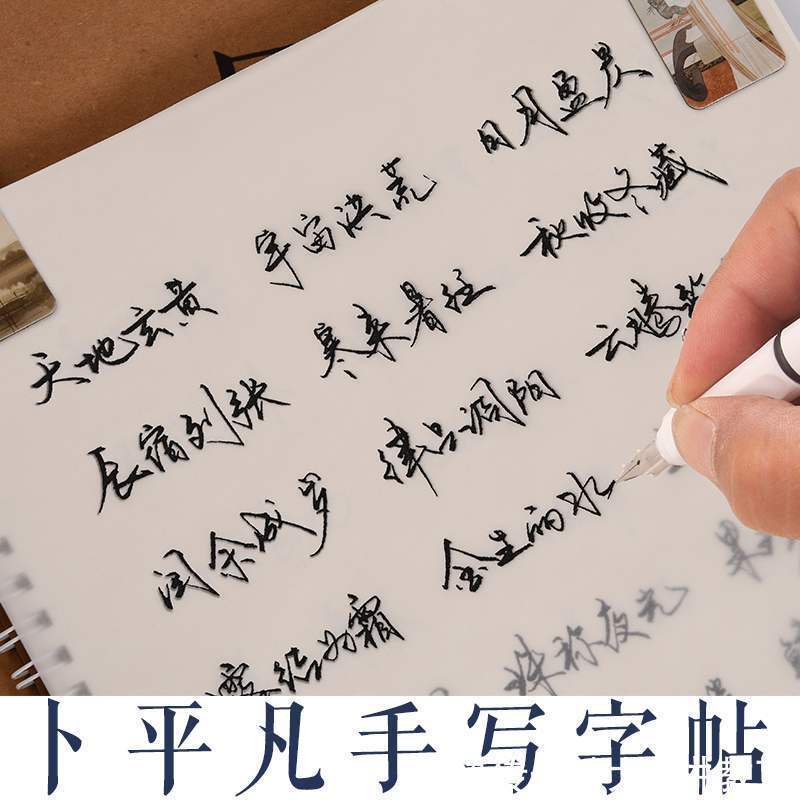 天地玄黄 宇宙洪荒 日月盈昃
辰宿列张 寒来暑往 秋收冬藏
闰余成岁 律吕调阳 云腾
露结为霜 金生丽水
珠称夜光 果
卜平凡手写字帖